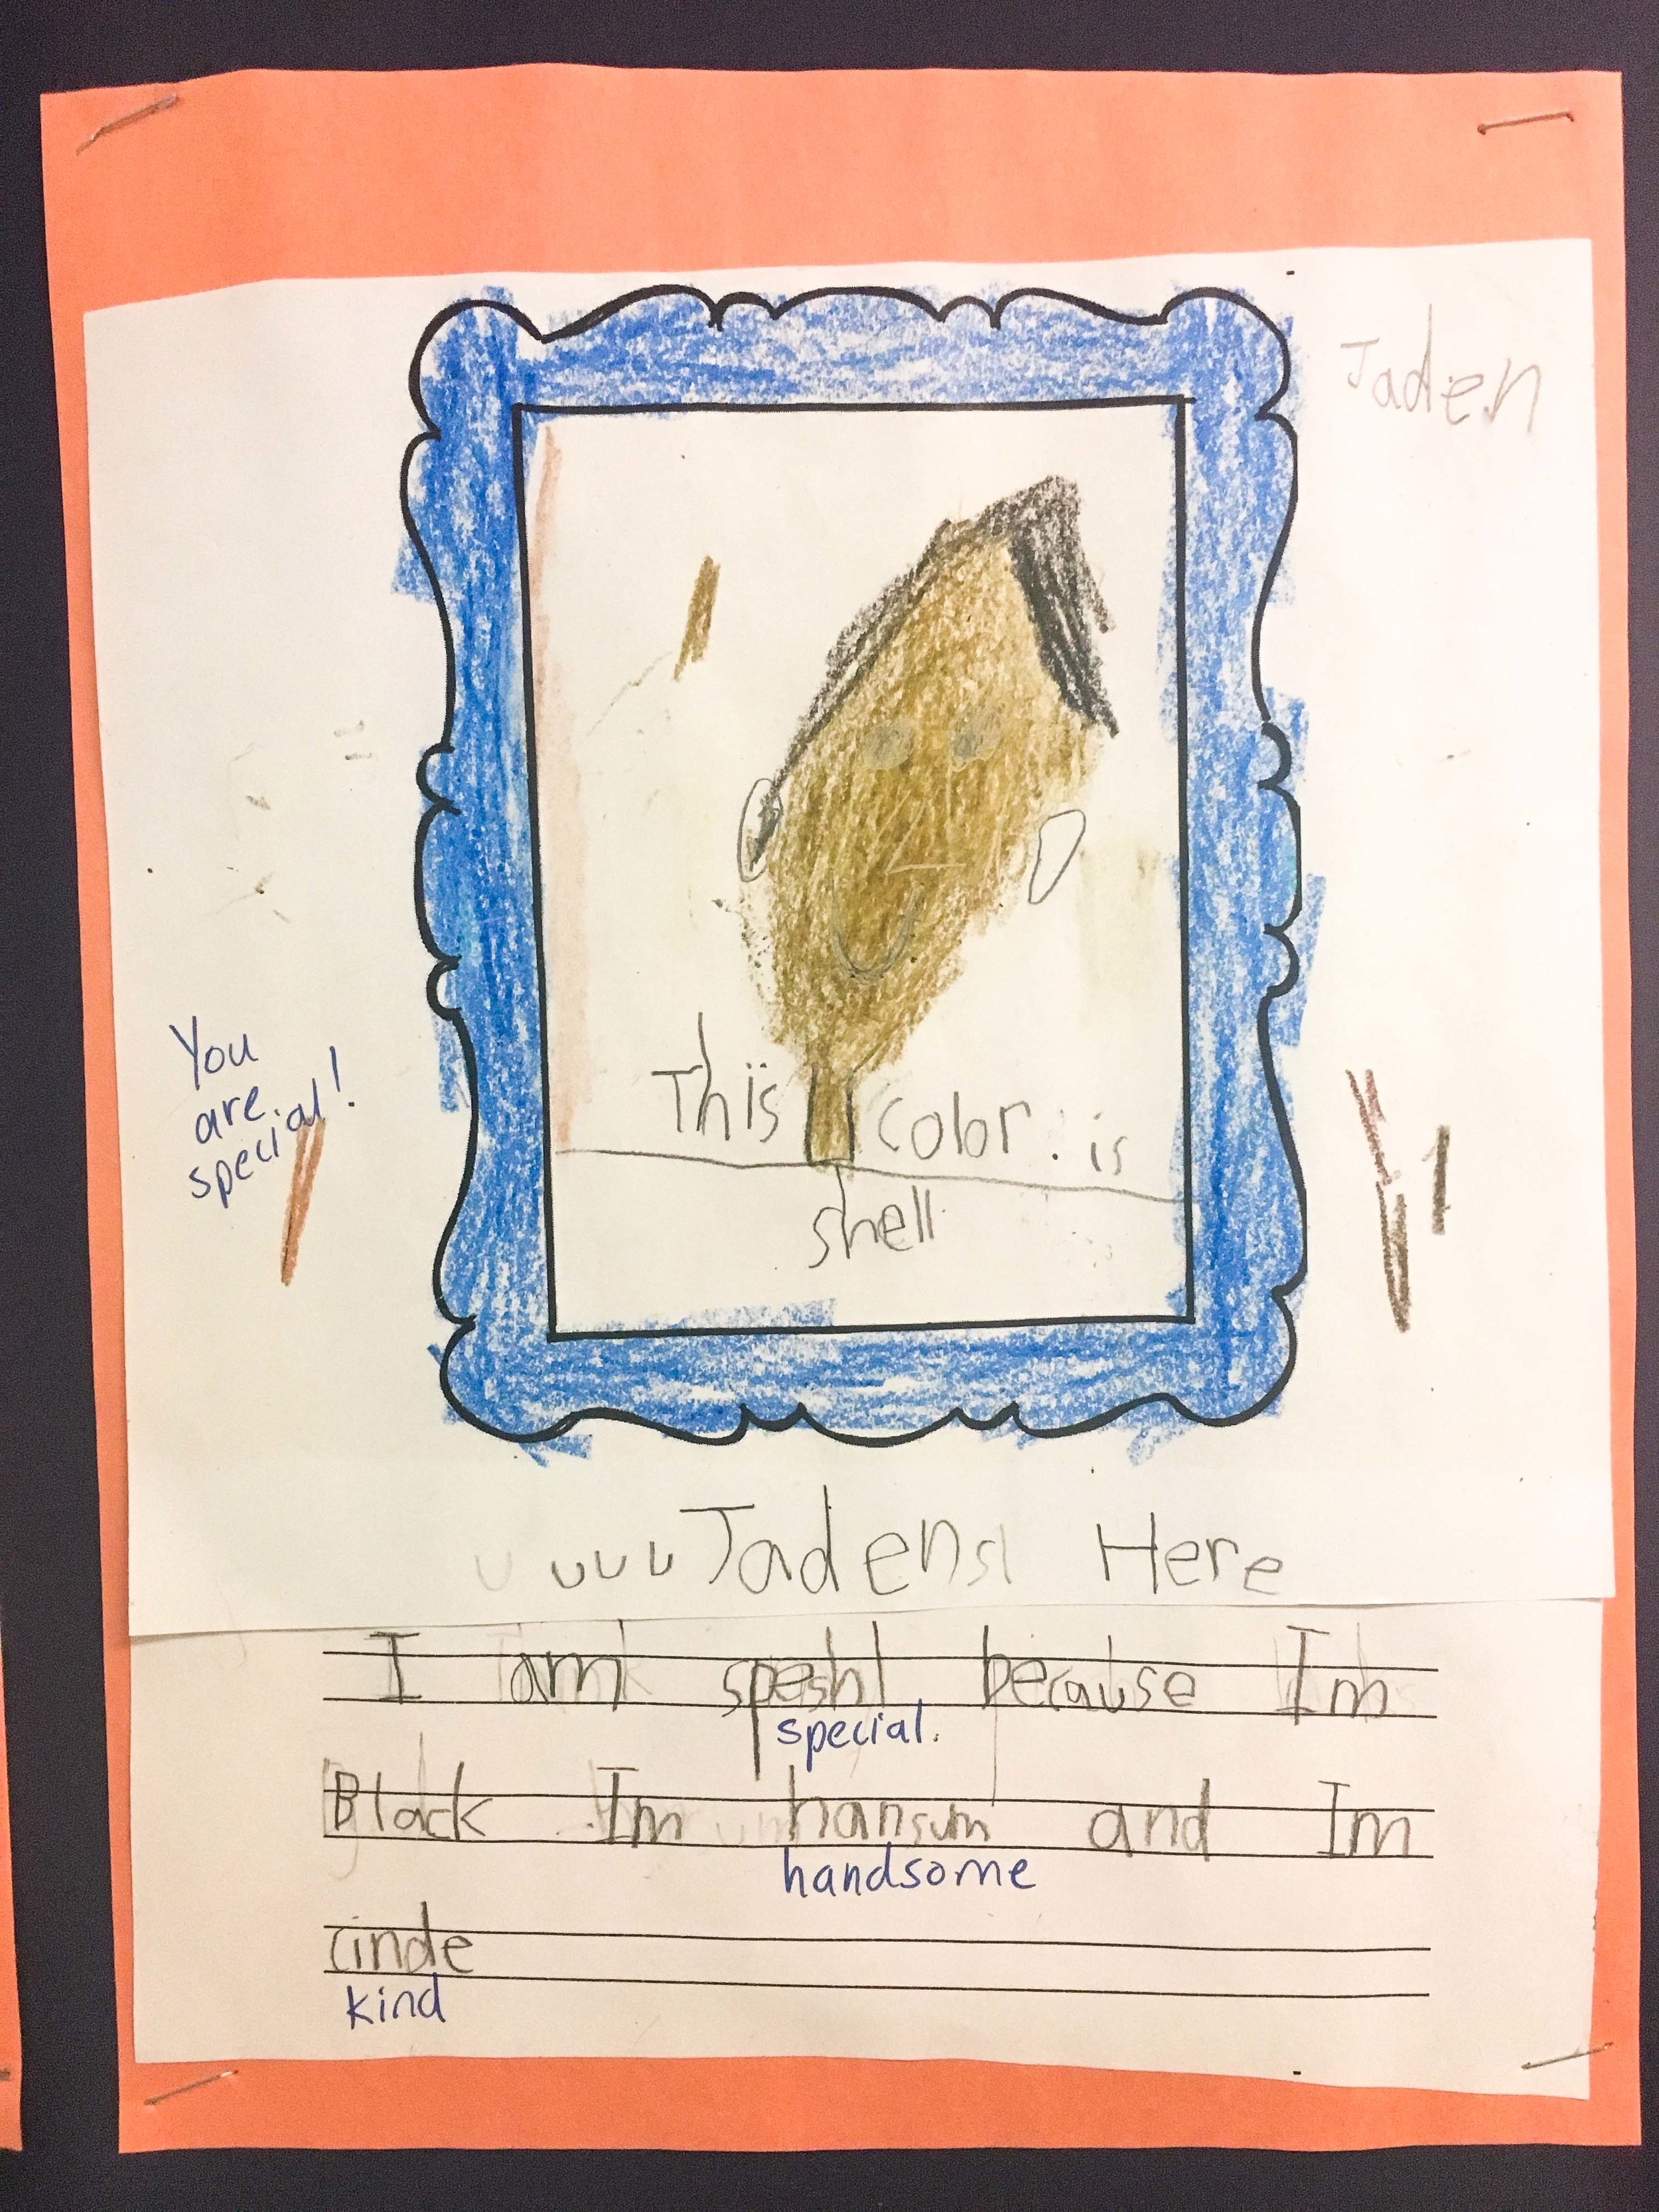 Jaden
This color is
shell
You
are
special!
Jadens Here
I am speshl because Im
special.
Black Im hansum and Im
handsome
cinde
kind